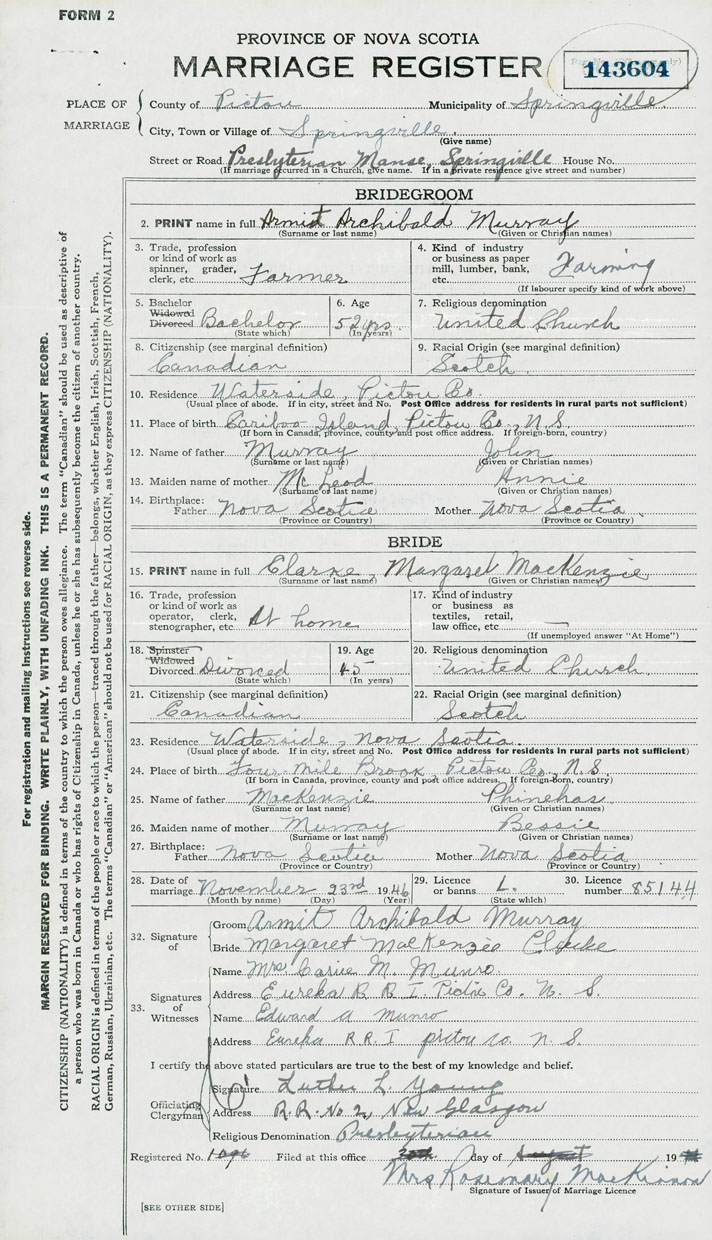 FORM 2
PROVINCE OF NOVA SCOTIA
MARRIAGE REGISTER
143604
PLACE OF MARRIAGE
County of Pictou Municipality of Springville
City, Town or Village of Springville.
(Give name)
Street or Road Presbyterian Manse, Springville House No.
(If marriage occurred in a Church, give name. If in a private residence give street and number)
BRIDEGROOM
2. PRINT name in full Armit Archibald Murray
(Surname or last name) (Given or Christian names)
3. Trade, profession or kind of work as spinner, grader, clerk, etc. Farmer
4. Kind of industry or business as paper mill, lumber, bank, etc. Farming
(If labourer specify kind of work above)
5. Bachelor Widowed Divorced Bachelor
(State which)
6. Age 52 yrs.
(In years)
7. Religious denomination United Church
8. Citizenship (see marginal definition) Canadian
9. Racial Origin (see marginal definition) Scotch
10. Residence Waterside, Pictou Co.
(Usual place of abode. If in city, street and No. Post Office address for residents in rural parts not sufficient)
11. Place of birth Cariboo Island, Pictou Co., N.S.
(If born in Canada, province, county and post office address. If foreign-born, country)
12. Name of father Murray John
(Surname or last name) (Given or Christian names)
13. Maiden name of mother McLeod Annie
(Surname or last name) (Given or Christian names)
14. Birthplace: Father Nova Scotia Mother Nova Scotia
(Province or Country) (Province or Country)
BRIDE
15. PRINT name in full Clarke, Margaret MacKenzie
(Surname or last name) (Given or Christian names)
16. Trade, profession or kind of work as operator, clerk, stenographer, etc. At home
17. Kind of industry or business as textiles, retail, law office, etc. —
(If unemployed answer "At Home")
18. Spinster Widowed Divorced Divorced
(State which)
19. Age 45
(In years)
20. Religious denomination United Church.
21. Citizenship (see marginal definition) Canadian
22. Racial Origin (see marginal definition) Scotch
23. Residence Waterside, Nova Scotia
(Usual place of abode. If in city, street and No. Post Office address for residents in rural parts not sufficient)
24. Place of birth Four Mile Brook, Pictou Co., N.S.
(If born in Canada, province, county and post office address. If foreign-born, country)
25. Name of father MacKenzie Phinehas
(Surname or last name) (Given or Christian names)
26. Maiden name of mother Murray Bessie
(Surname or last name) (Given or Christian names)
27. Birthplace: Father Nova Scotia Mother Nova Scotia
(Province or Country) (Province or Country)
28. Date of marriage November 23rd 1946
(Month by name) (Day) (Year)
29. Licence or banns L.
(State which)
30. Licence number 85144
32. Signature of
Groom Armit Archibald Murray
Bride Margaret MacKenzie Clarke
33. Signatures of Witnesses
Name Mrs Carrie M. Munro.
Address Eureka R R I. Pictou Co. N. S.
Name Edward A Munro
Address Eureka R.R. I pictou co. N. S.
I certify the above stated particulars are true to the best of my knowledge and belief.
Officiating Clergyman
Signature Luther L. Young
Address R.R. No 2, New Glasgow
Religious Denomination Presbyterian
Registered No. Filed at this office day of August 19
Mrs Rosemary MacKinnon
Signature of Issuer of Marriage Licence
[SEE OTHER SIDE]
For registration and mailing instructions see reverse side.
MARGIN RESERVED FOR BINDING. WRITE PLAINLY, WITH UNFADING INK. THIS IS A PERMANENT RECORD.
CITIZENSHIP (NATIONALITY) is defined in terms of the country to which the person owes allegiance. The term "Canadian" should be used as descriptive of
a person who was born in Canada or who has rights of Citizenship in Canada, unless he or she has subsequently become the citizen of another country.
RACIAL ORIGIN is defined in terms of the people or race to which the person—traced through the father—belongs, whether English, Irish, Scottish, French,
German, Russian, Ukrainian, etc. The terms "Canadian" or "American" should not be used for RACIAL ORIGIN, as they express CITIZENSHIP (NATIONALITY).